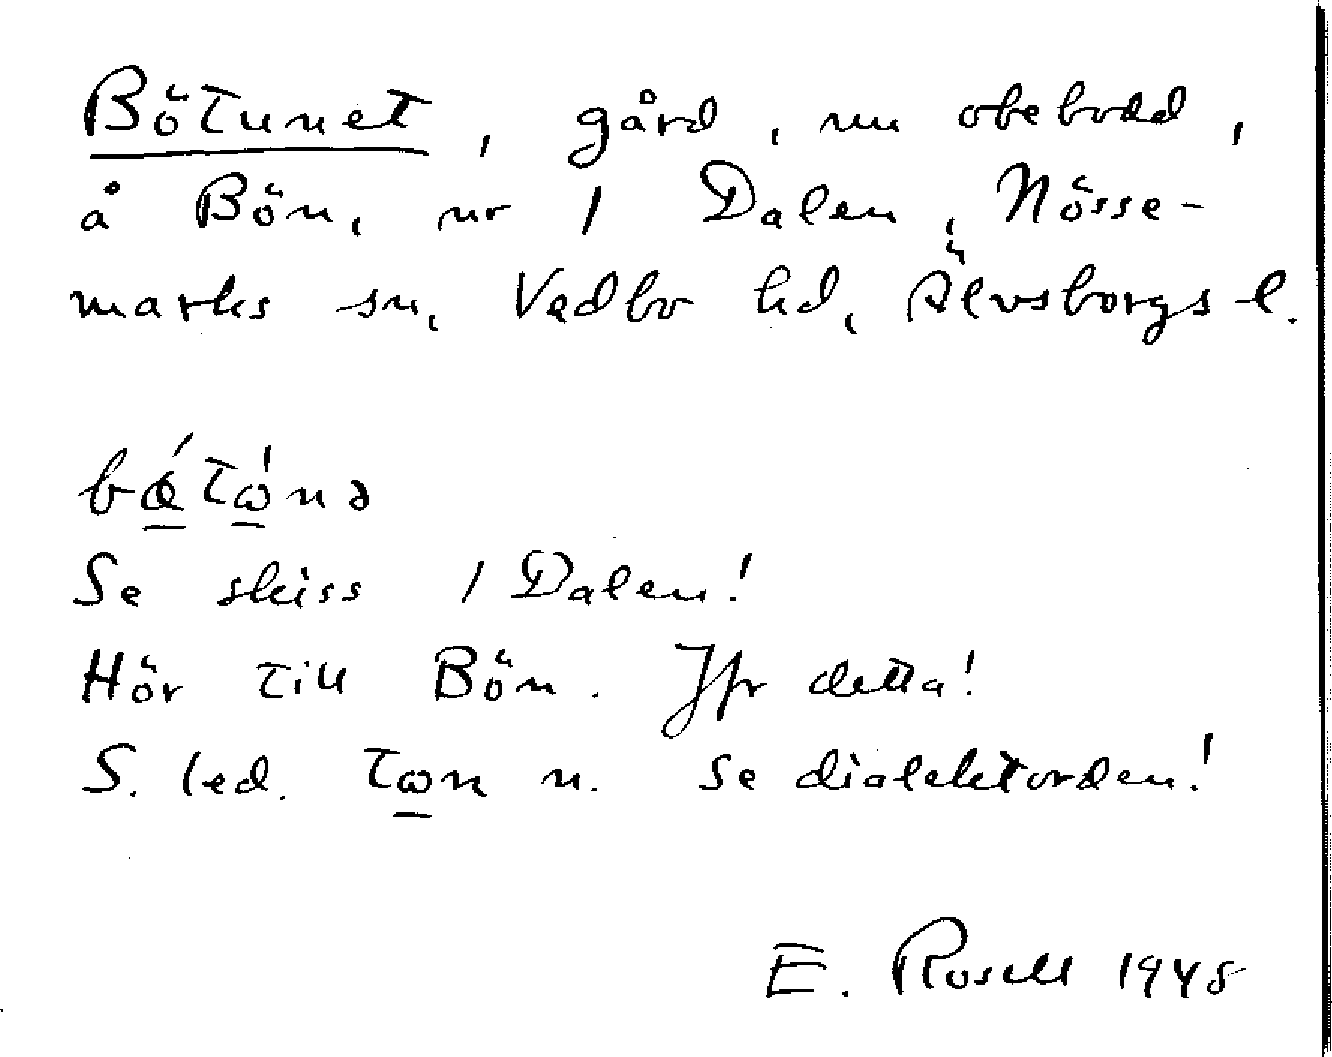 Bötunet, gård, nu obebodd,
å Bön, nr 1 Dalen, Nösse-
marks sn, Vedbo hd, Älvsborgs l.
Se skiss 1 Dalen!
Hör till Bön. Jfr detta!
S. led. tωn n. Se dialektorden!
E. Rosell 1948